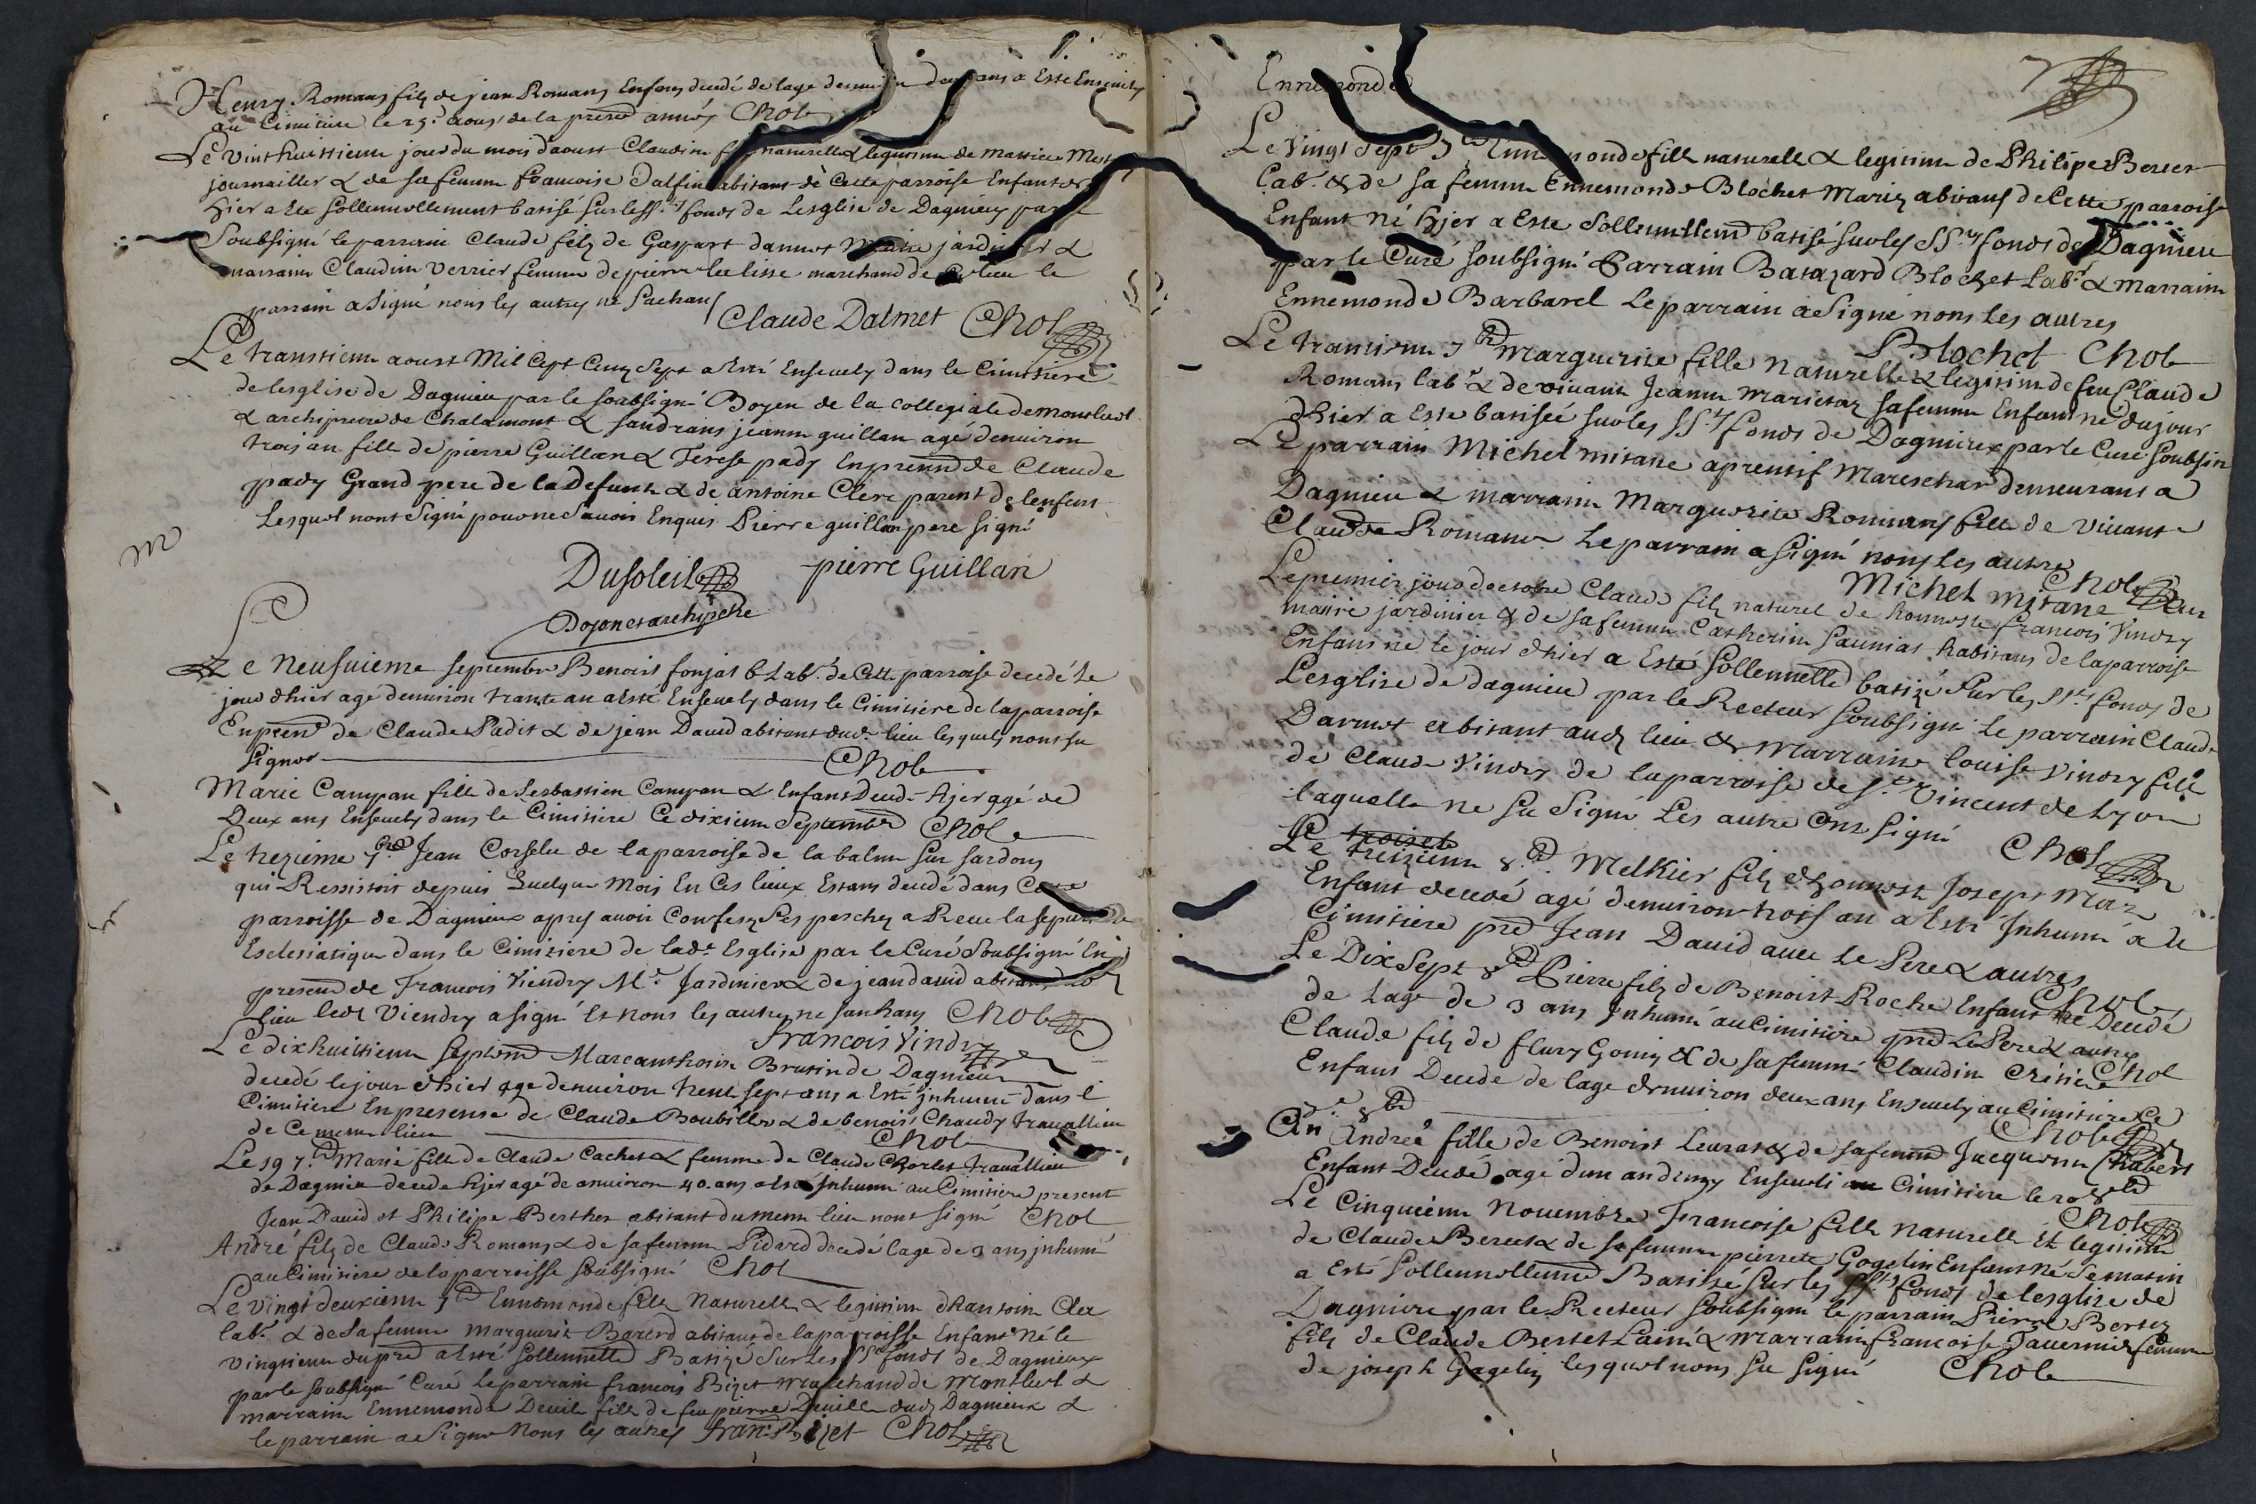 Henry Romans filz de jean Romans Enfans decedé de lage denuiron deux ans a Esté Enseuely
au Cimitiere le 25.e aous de la presēd année Chol
Le vint huittieme jour du mois daoust Claudine naturelle & legitime de
journailler & de sa femme francoise Dalfin abitans de Cette parroise Enfant
hier a Este sollemnellement batisé sur les SS.ts fonds de Lesglise de Dagnieu par le
Soubsigné le parrain Claude filz de Gaspart dannet Maitre jardinier &
marraine Claudine Verrier femme de pierre marchand de Ce lieu le
parrain a signé nons les autres ne sachans
Claude Dalmet Chol
Le trantieme aoust Mil Cept Cens Sept a Esté Enseuely dans le Cimitiere
de lesglise de Dagnieu par le soubsigné Doyen de la Collegiale de montluel
& archiprere de Chalamont & sandrans jeanne guillan agé denuiron
trois an fille de pierre Guillan & Terese pady En presend de Claude
pady Grand pere de la Defunte & de antoine Clerc parent de lenfent
Lesquel nont Signé pour ne Sauoir Enquis Pierre guillan pere signé
Dusoleil pierre Guillan
Doyen et archipretre
Le Neufuieme septembre Benoist fonjat Lab.r de Cette parroise decedé le
jour dhier agé denuiron trante an a Esté Enseuely dans le Cimitiere de la parroise
En presen de Claude Padit & de jean Dauid abitant dud. lieu lesquels nont su
signer Chol
Marie Campan fille de Sesbastien Campan & Enfant Decedé Hjer agé de
Deux ans Enseuely dans le Cimitiere Ce dixieme Septembre Chol
Le trezieme 7.bre Jean Corselu de la parroise de la balme sur sardons
qui Ressistoit depuis quelque Mois En Ces lieux Estans decedé dans Cette
parroisse de Dagnieux apres auoir Confesez Ses peschez a Receu la sepulture
Esclesiatique dans le Cimitiere de lad.e Esglise par le Curé Soubsigné En
presend de Francois Viendry M.e Jardinier & de jean dauid abitans du
lieu ledt Viendry a signé Et nons les autres ne sachans Chol
Francois Vindry
Le dix huittieme Septemb Marcanthoine Brutin de Dagnieu
decedé le jour dhier agé denuiron trent sept ans a Esté jnhumé dans l
Cimitiere En presense de Claude Boubillon & de benoist Chaudy trauallieu
de Ce meme lieu Chol
Le 19 7.bre Marie fille de Claude Cachet & femme de Claude Chorlet trauallieur
de Dagnieu decedé hier agé de anuiron 40. ans a Esté Jnhumé au Cimitiere present
Jean Dauid et Philipe Berthet abitant du meme lieu nont signé Chol
André filz de Claude Romans & de sa femme Pidard decedé lage de 3 ans jnhumé
au Cimitiere de la parroisse soubsigné Chol
Le vingt deuxieme 7.bre Ennemonde fille Naturelle & legitime dhantoine
lab.r & de sa femme Marguerite Barerd abitans de la parroisse Enfant Né le
vingtieme du pred a Esté sollennelle Batizé sur les SS.ts fonds de Dagnieux
par le soubsigné Curé le parrain francois Bizet Marchand de Montluel &
marraine Ennemonde Deuile fille de feu pierre Deuille dud. Dagnieux &
le parrain a Signé Nons les autres fran. Bizet Chol
Ennemonde
Le Vingt sept 7.bre Ennemonde fille naturelle & legitime de Philipe Berset
Lab.r & de sa femme Ennemonde Blochet Mariez abitans de Cette parroise
Enfant Né hjer a Este sollemnellemd batisé sur les SS.ts fonds de Dagnieu
par le Curé soubsigné Parrain Batazard Blochet Lab.r & Marraine
Ennemonde Barbarel Le parrain a Signé nons les autres
Blochet Chol
Le trantieme 7.bre Marguerite fille Naturelle & legitime de feu Claude
Romans lab.r & de viuante Jeanne Marietan sa femme Enfant né du jour
dhier a Este batisée sur les SS.ts fonds de Dagnieux par le Curé Soubsin
Le parrain Michel mitane aprentif Mareschar demeurans a
Dagnieu & marraine Marguerite Romans fille de viuant
Claude Romans Le parrain a Signé nons les autres
Michel mitane Chol
Le premier jour doctobre Claude filz naturel de honneste francois Vindry
maitre jardinier & de sa femme Catherine Saunias habitans de la parroise
Enfans né le jour dhier a Esté Sollennelle batizé Sur les SS.ts fonds de
Lesglise de dagnieu par le Recteur soubsigné le parrain Claude
Darmet abitant aud. lieu & Marraine louise Vindry fille
de Claude Vindry de la parroise de S.t Vincent de Lyon
laquelle ne su Signé Les autre ont signé Chol
Le treizieme 8.bre Melkier filz dhonneste Joseph
Enfant decedé agé denuiron trois an a Esté Jnhumé a le
Cimitiere pred Jean Dauid auec le Pere & autres
Chol
Le Dix Sept 8.bre Pierre filz de Benoist Roche Enfant Decedé
de Lage de 3 ans Jnhumé au Cimitiere pred le Pere & autres
Chol
Claude filz de flury Gonin & de sa femme Claudin
Enfans Decede de lage denuiron deux ans Enseuely au Cimitiere Ce
8.bre Chol
Andreé fille de Benoist Leurat & de sa femme Jacqueme Chabert
Enfant Decedé agé dun an demy Enseueli au Cimitiere le 20 8.bre
Chol
Le Cinquieme Nouembre Francoise fille Naturelle Et legitime
de Claude Berset & de sa femme pierrete Gogelin Enfant Né Se matin
a Esté sollennellemend Batizé sur les SS.ts fonds de lesglise de
Dagnieu par le Recteur soubsigné le parrain Pierre Berset
filz de Claude Berset Lainé & Marraine francoise Tauernier femme
de joseph Gogelin lesquel nons su signé Chol